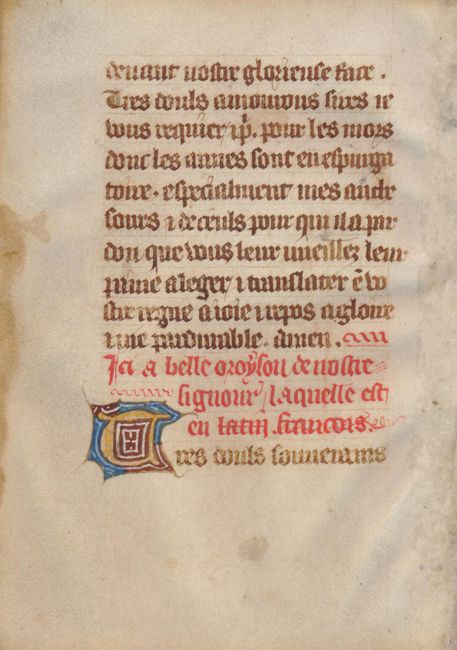 deuant nostre glorieuse face .
Tres douls amourous sires ie
vous requier ip̄. pour les mors
dont les armes sont en espurga
toire . especialment mes ancte
sours ⁊ de ceuls pour qui il a par
don que vous leur vueillez leur
paine aleger ⁊ translater ē vo
stre regne a ioie ⁊ repos a gloire
⁊ vie pardurable . amen .
Ici a belle oroyson de nostre
signour / laquelle est
en latin . francois
Tres douls souuerains